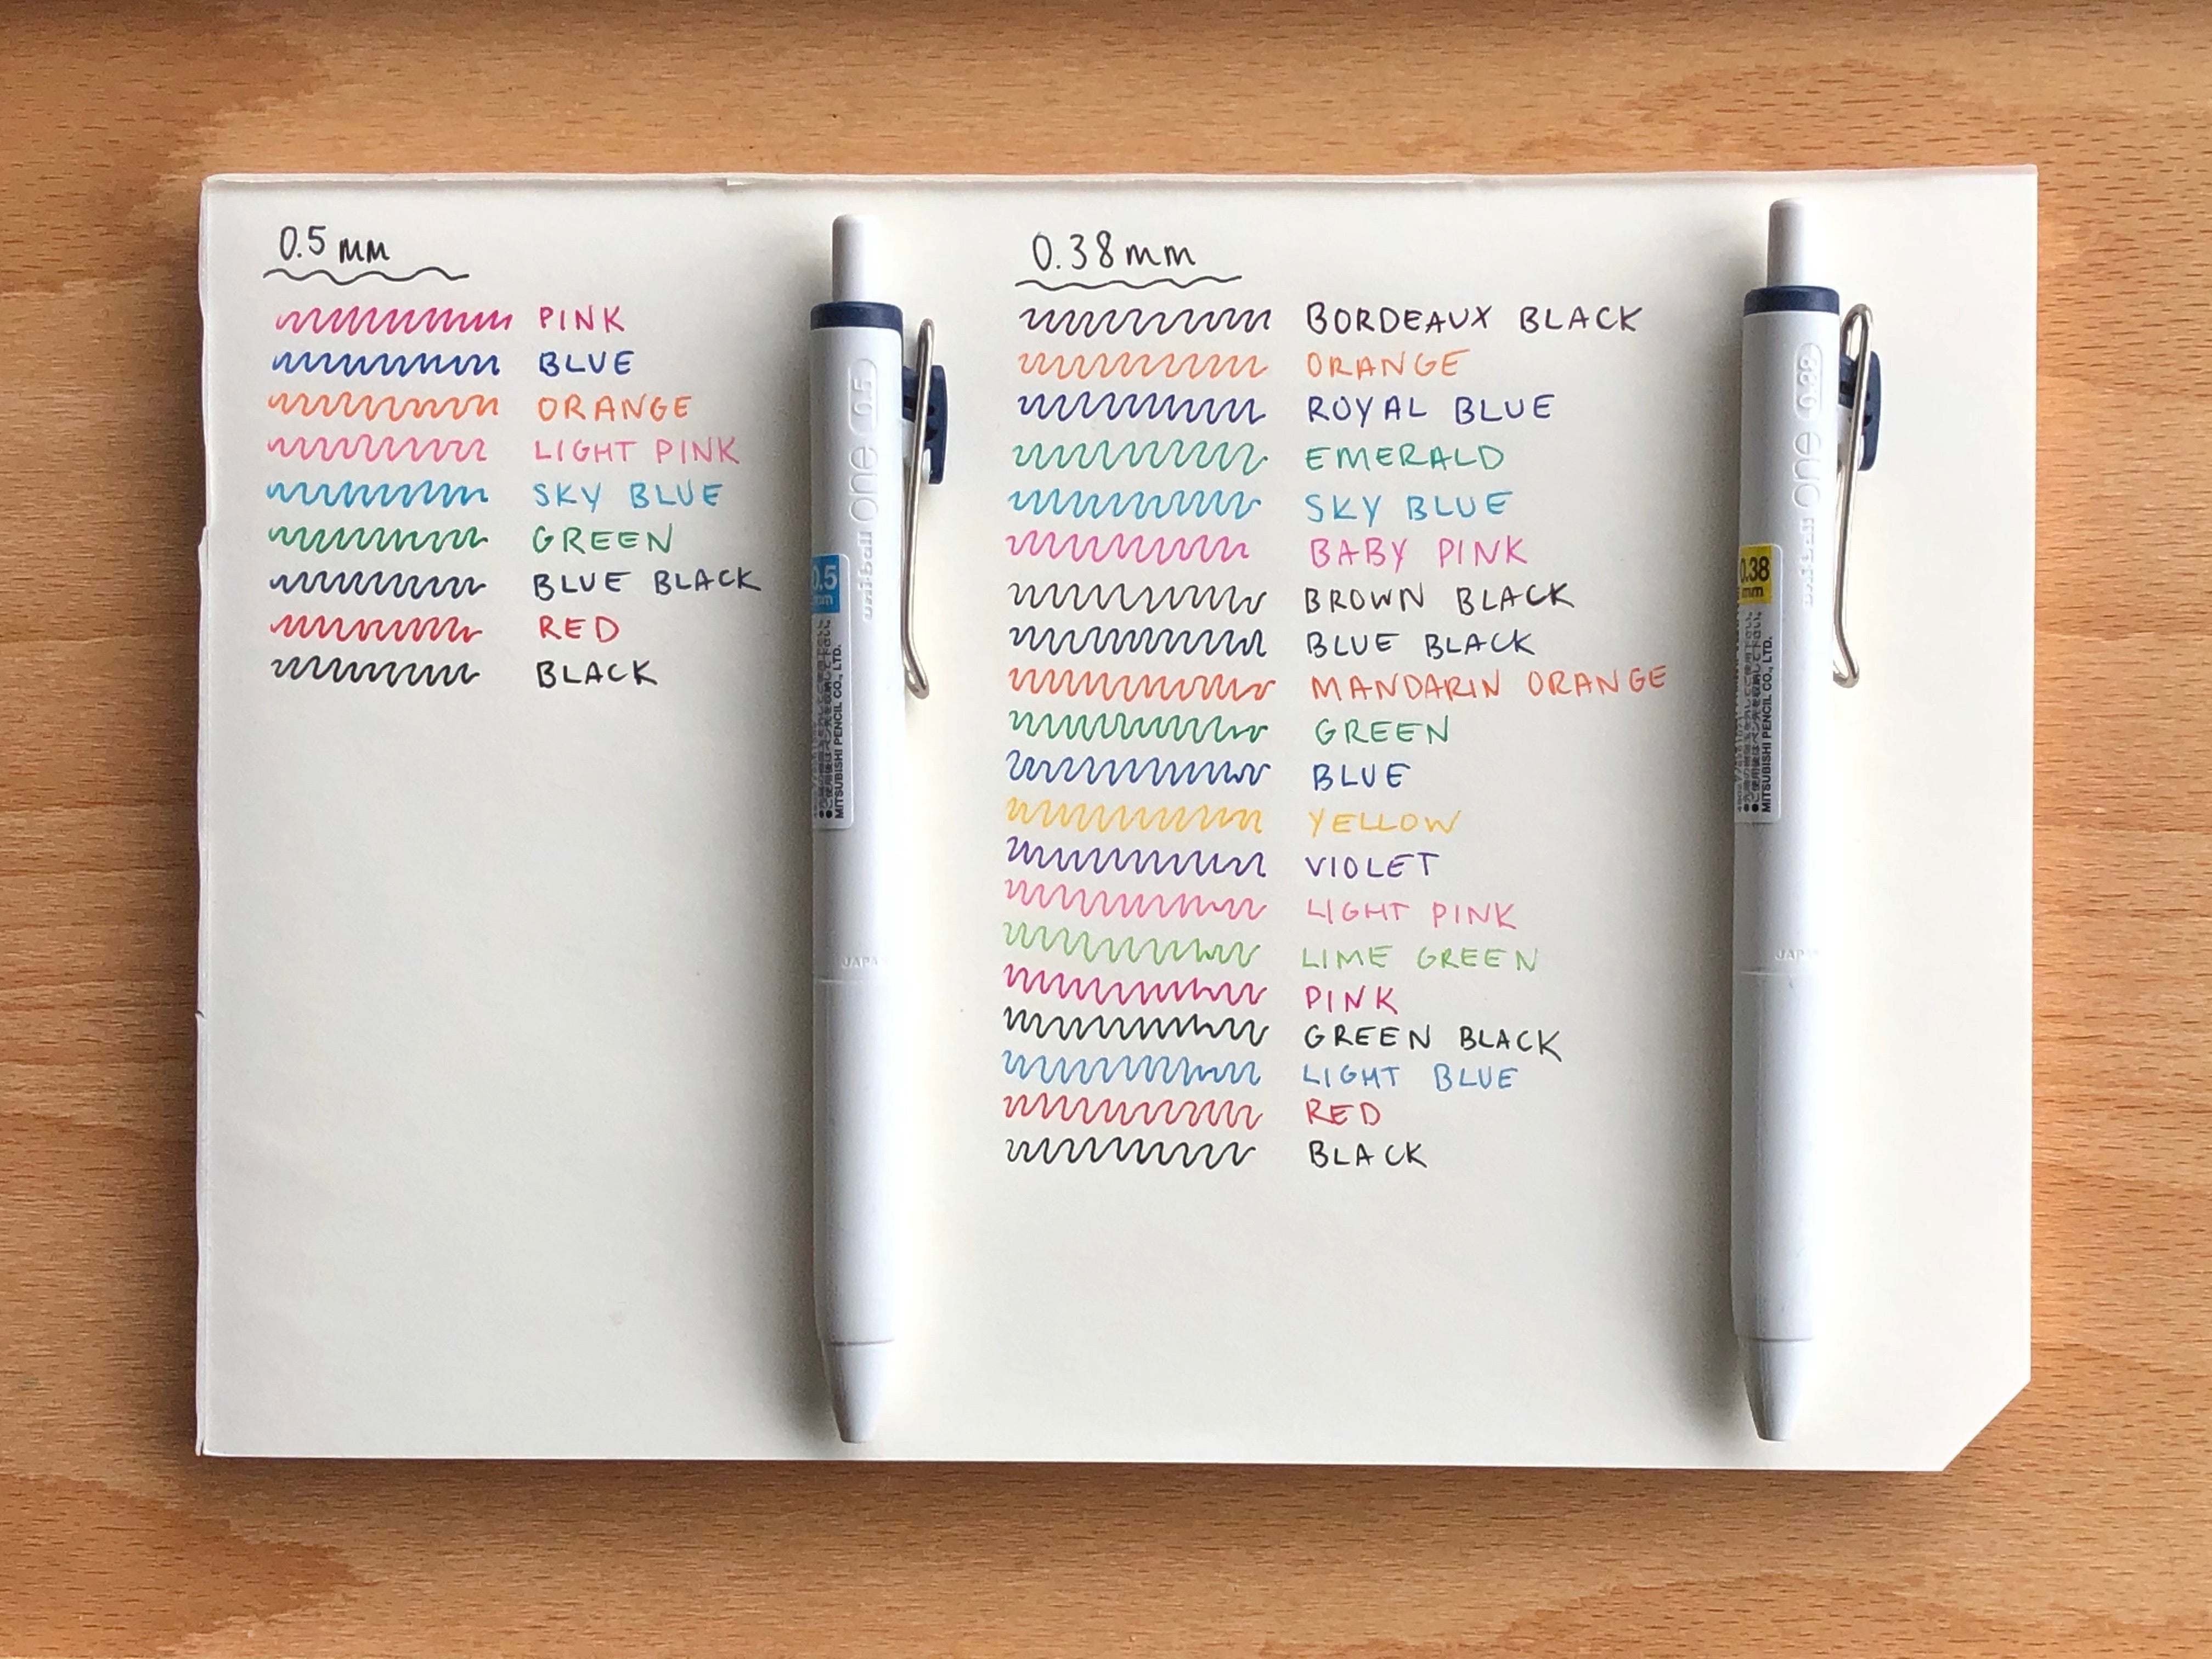 0.5 mm
PINK
BLUE
ORANGE
LIGHT PINK
SKY BLUE
GREEN
BLUE BLACK
RED
BLACK
uni-ball one 0.5
0.5
mm
MITSUBISHI PENCIL CO., LTD.
JAPA
0.38 mm
BORDEAUX BLACK
ORANGE
ROYAL BLUE
EMERALD
SKY BLUE
BABY PINK
BROWN BLACK
BLUE BLACK
MANDARIN ORANGE
GREEN
BLUE
YELLOW
VIOLET
LIGHT PINK
LIME GREEN
PINK
GREEN BLACK
LIGHT BLUE
RED
BLACK
uni-ball one 0.38
0.38
mm
MITSUBISHI PENCIL CO., LTD.
JAP